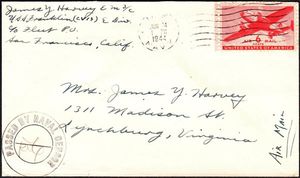 James Y Harvey E M 3/c
U.S.S. Franklin (CV13) E Div.
℅ Fleet P.O.
San Francisco, Calif.
194
AIR MAIL
6
CENTS
UNITED STATES OF AMERICA
Mrs. James Y. Harvey
1311 Madison St.
Lynchburg, Virginia
Air Mail
PASSED BY NAVAL CENSOR